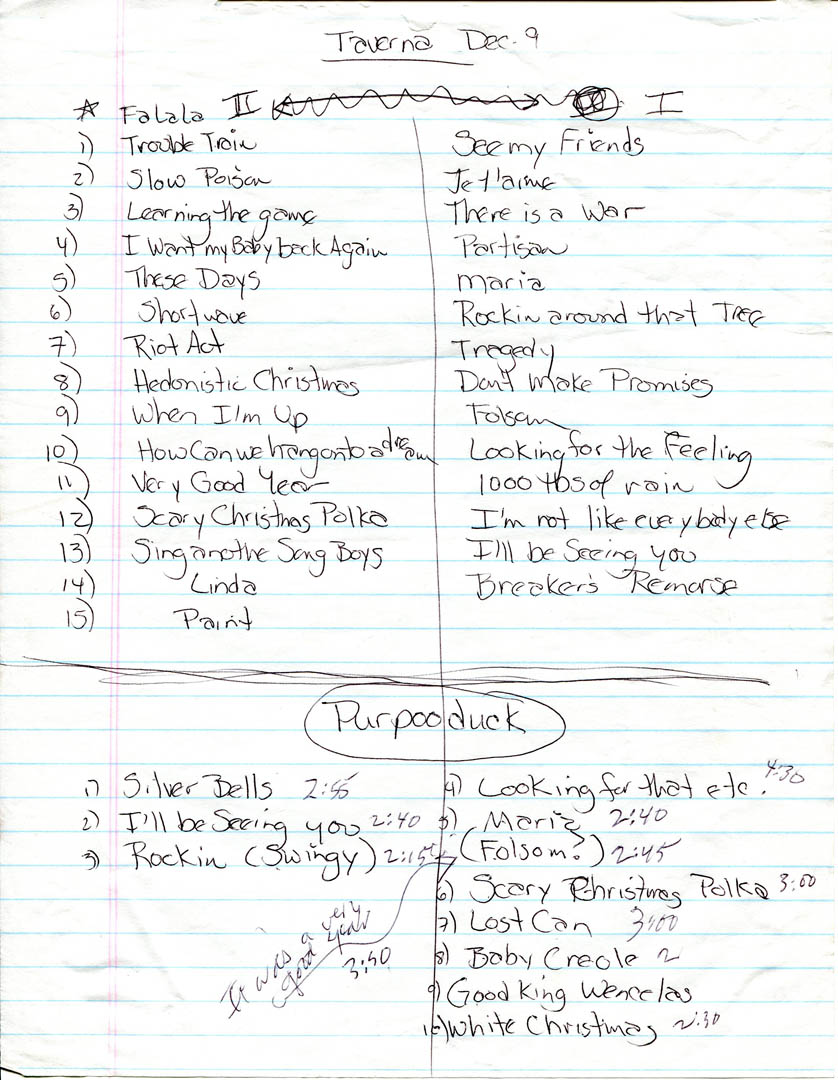 Taverna Dec. 9
☆ Falala II I
1) Trouble Train See my Friends
2) Slow Poison Je t'aime
3) Learning the game There is a War
4) I Want my Baby back Again Partisan
5) These Days Maria
6) Shortwave Rockin around that TREE
7) Riot Act Tragedy
8) Hedonistic Christmas Don't Make Promises
9) When I'm Up Folsom
10) How Can we hang on to a dream Looking for the Feeling
11) Very Good Year 1000 tbs of rain
12) Scary Christmas Polka I'm not like everybody else
13) Sing anothe Song Boys I'll be Seeing you
14) Linda Breaker's Remorse
15) Paint
Purpooduck
1) Silver Bells 2:55
2) I'll be Seeing you 2:40
3) Rockin (Swingy) 2:15
It was a very good year 3:50
4) Looking for that etc. 4:30
5) Maria 2:40
(Folsom?) 2:45
6) Scary Christmas Polka 3:00
7) Lost Can 3:00
8) Baby Creole 2
9) Good King Wencelas
10) White Christmas 2:30